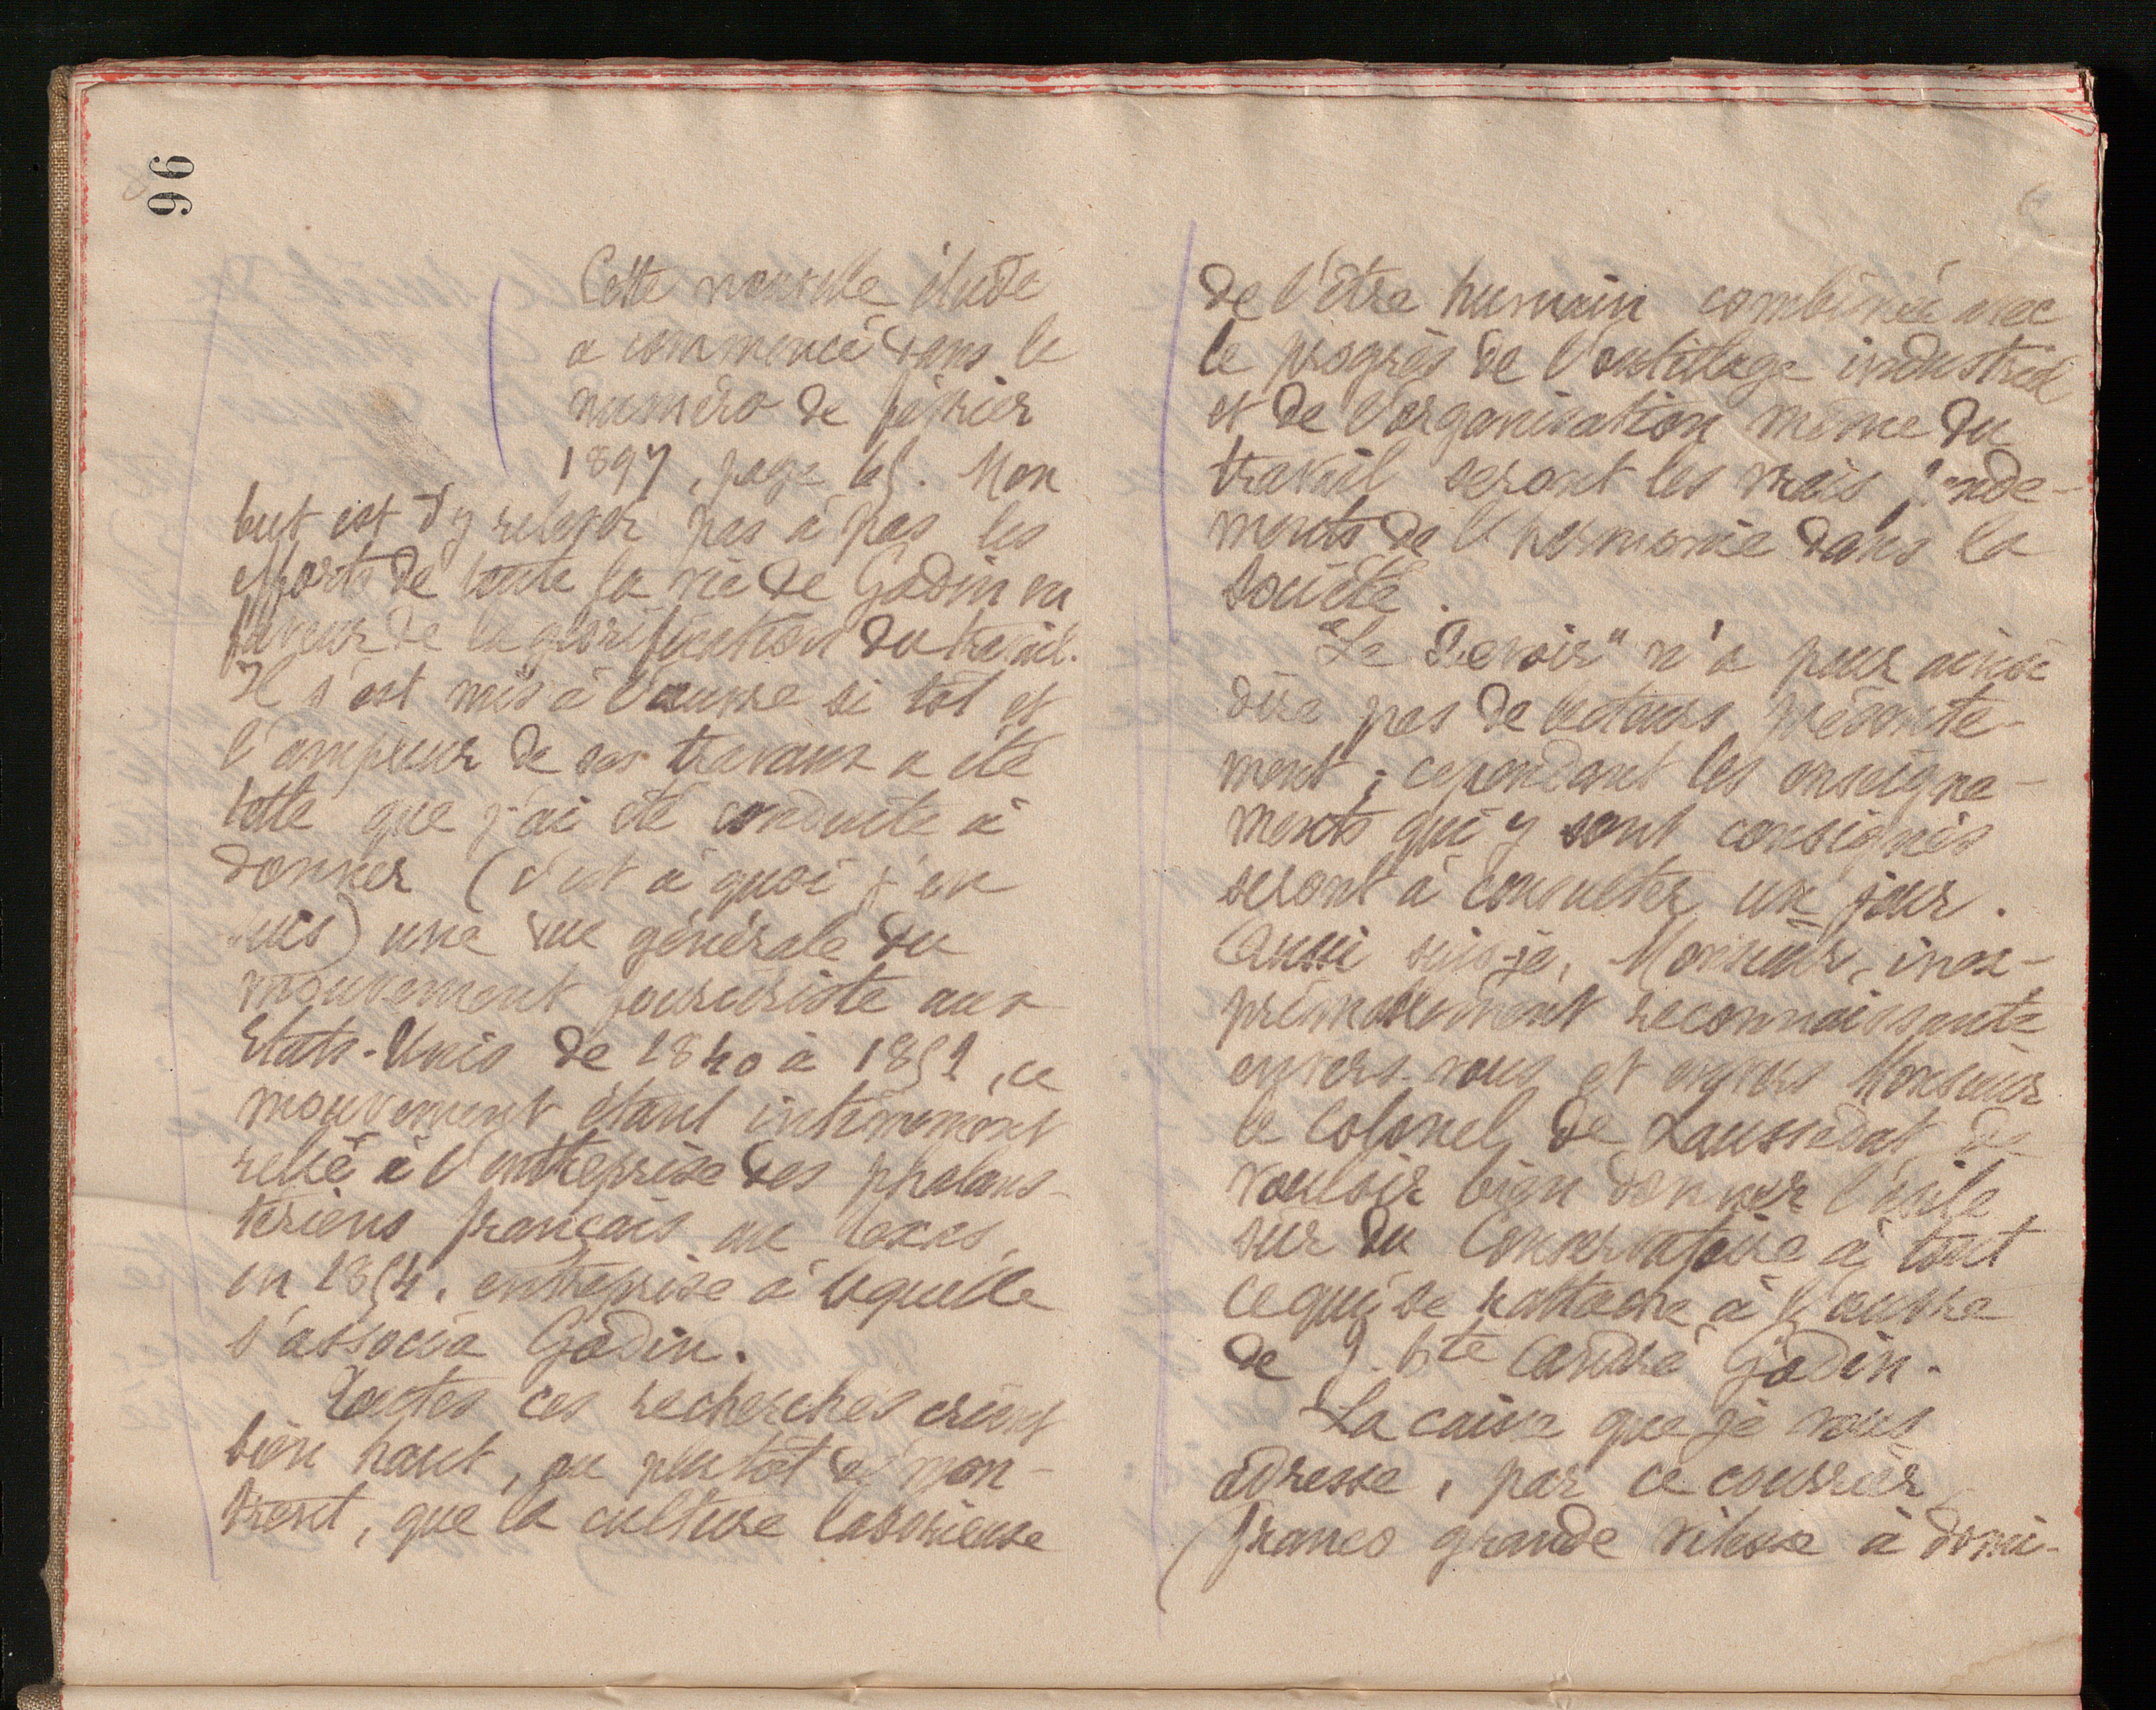 96
Cette nouvelle étude
a commencé dans le
numéro de février
1897, page 65. Mon
but est d'y relever pas à pas les
efforts de toute la vie de Godin en
faveur de la glorification du travail.
Il s'est mis à l'œuvre si tôt et
l'ampleur de ses travaux a été
telle que j'ai été conduite à
donner (c'est à quoi j'en
suis) une vue générale du
mouvement fouriériste aux
Etats-Unis de 1840 à 1851, ce
mouvement étant intimement
relié à l'entreprise des phalans-
tériens français au Texas,
en 1854, entreprise à laquelle
s'associa Godin.
Toutes ces recherches crient
bien haut, ou plutôt démon-
trent, que la culture laborieuse
de l'être humain combinée avec
le progrès de l'outillage industriel
et de l'organisation même du
travail seront les vrais fonde-
ments de l'harmonie dans la
société.
"Le Devoir" n'a pour ainsi
dire pas de lecteurs présente-
ment ; cependant les enseigne-
ments qui y sont consignés
seront à consulter un jour.
Aussi suis-je, Monsieur, inex-
primablement reconnaissante
envers vous et envers Monsieur
le Colonel de Laussedat de
vouloir bien donner l'asile
sûr du Conservatoire à tout
ce qui se rattache à l'œuvre
de J. Bte André Godin.
La caisse que je vous
adresse, par ce courrier
(franco grande vitesse à domi-